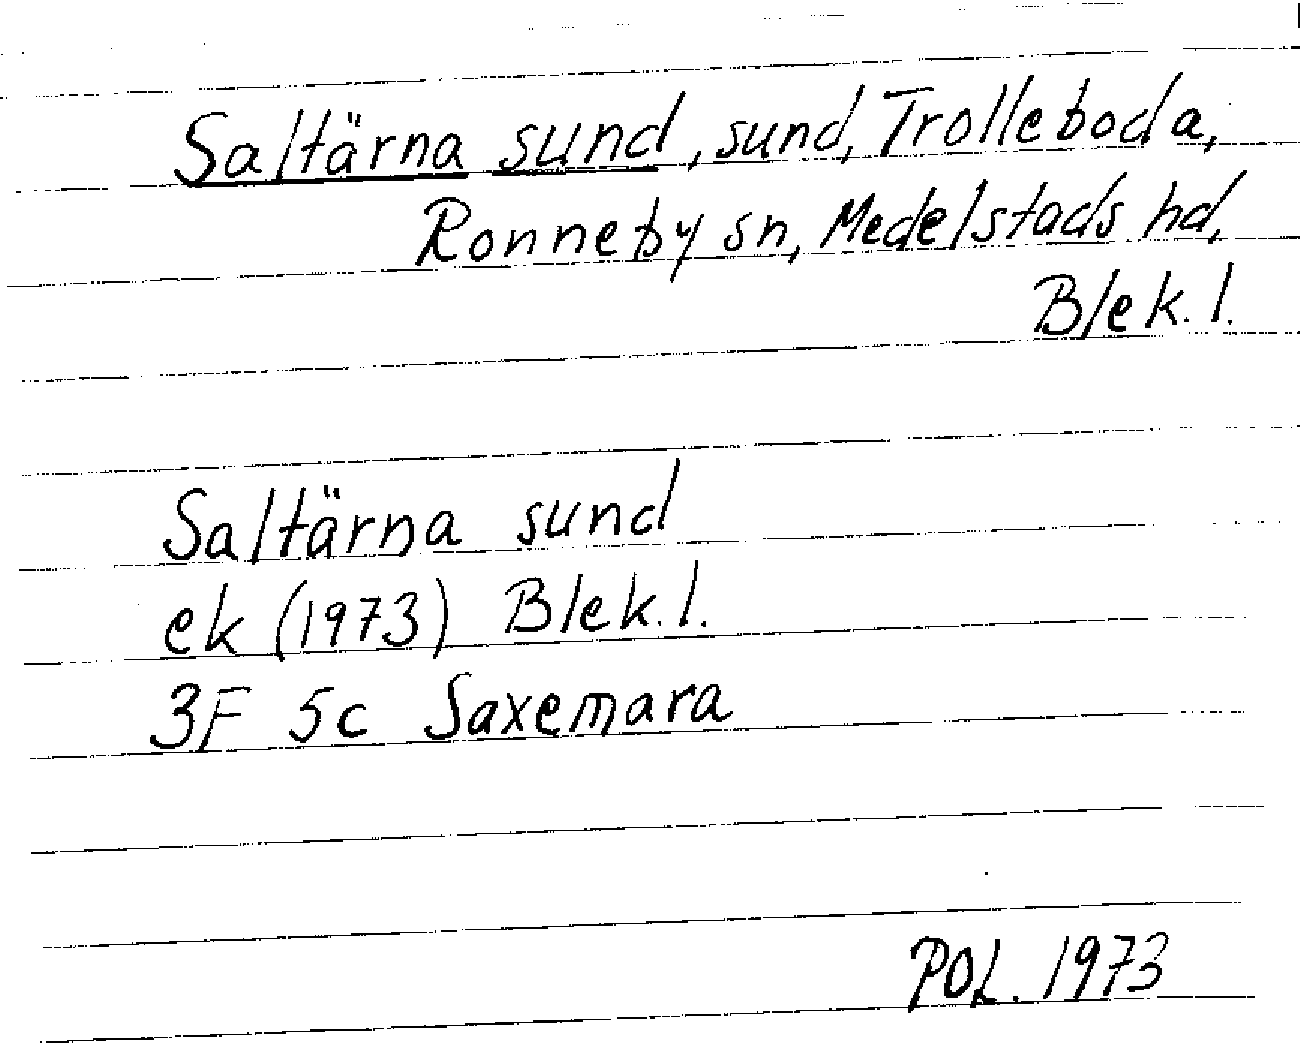 Saltärna sund, sund, Trolleboda,
Ronneby sn, Medelstads hd,
Blek. l.
Saltärna sund
ek (1973) Blek. l.
3F 5c Saxemara
POL. 1973